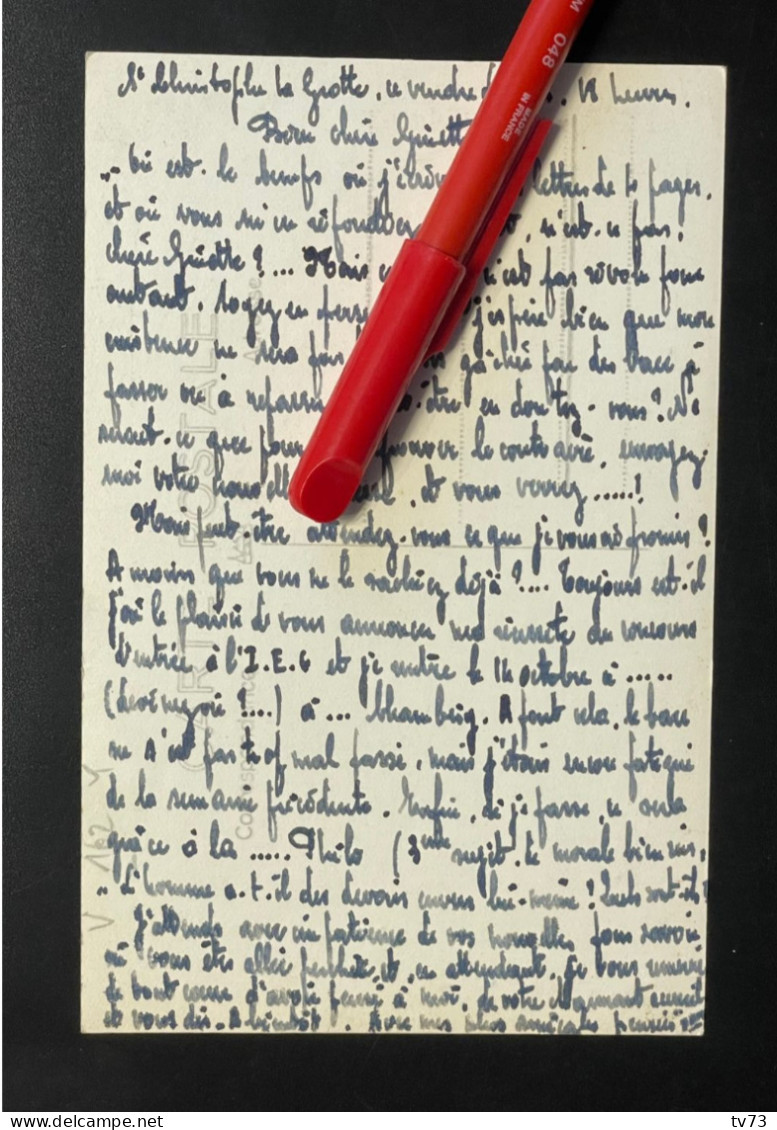 St Christophe la Grotte, ce vendre 18 heures.
Bien chère Ginett
Où est le temps où j' lettres de 10 pages,
et où vous m'en n'est-ce pas,
chère Ginette ?... Mais n'est pas révolu pour
autant. Soyez en pers j'espère bien que mon
existence ne sera pas gâchée par des bacs à
passer ou à repasser être en doutez-vous ? Ne
serait-ce que pour prouver le contraire, envoyez-
moi votre nouvelle , et vous verrez.....!
Mais peut-être attendez-vous ce que je vous ai promis ?
A moins que vous ne le sachiez déjà ?.... Toujours est-il
j'ai le plaisir de vous annoncer ma réussite au concours
d'entrée à l'I.E.G et je entre le 14 octobre à .....
(devinez où ?....) à ... Chambéry. A part cela, le bac
ne s'est pas trop mal passé, mais j'étais encore fatigué
de la semaine précédente. Enfin, si je passe, ce sera
grâce à la ..... Philo (3ème sujet de morale bien sûr,
"L'homme a-t-il des devoirs envers lui-même ? Quels sont-ils ?
J'attends avec impatience de vos nouvelles pour savoir
où vous êtes allée et, en attendant, je vous remercie
de tout coeur d'avoir pensé à moi, de votre charmant
et vous dis - A bientôt. Avec mes plus amicales pensées
CARTE POSTALE
Correspondance
Adresse
V 162
048
MADE
IN FRANCE
tv73